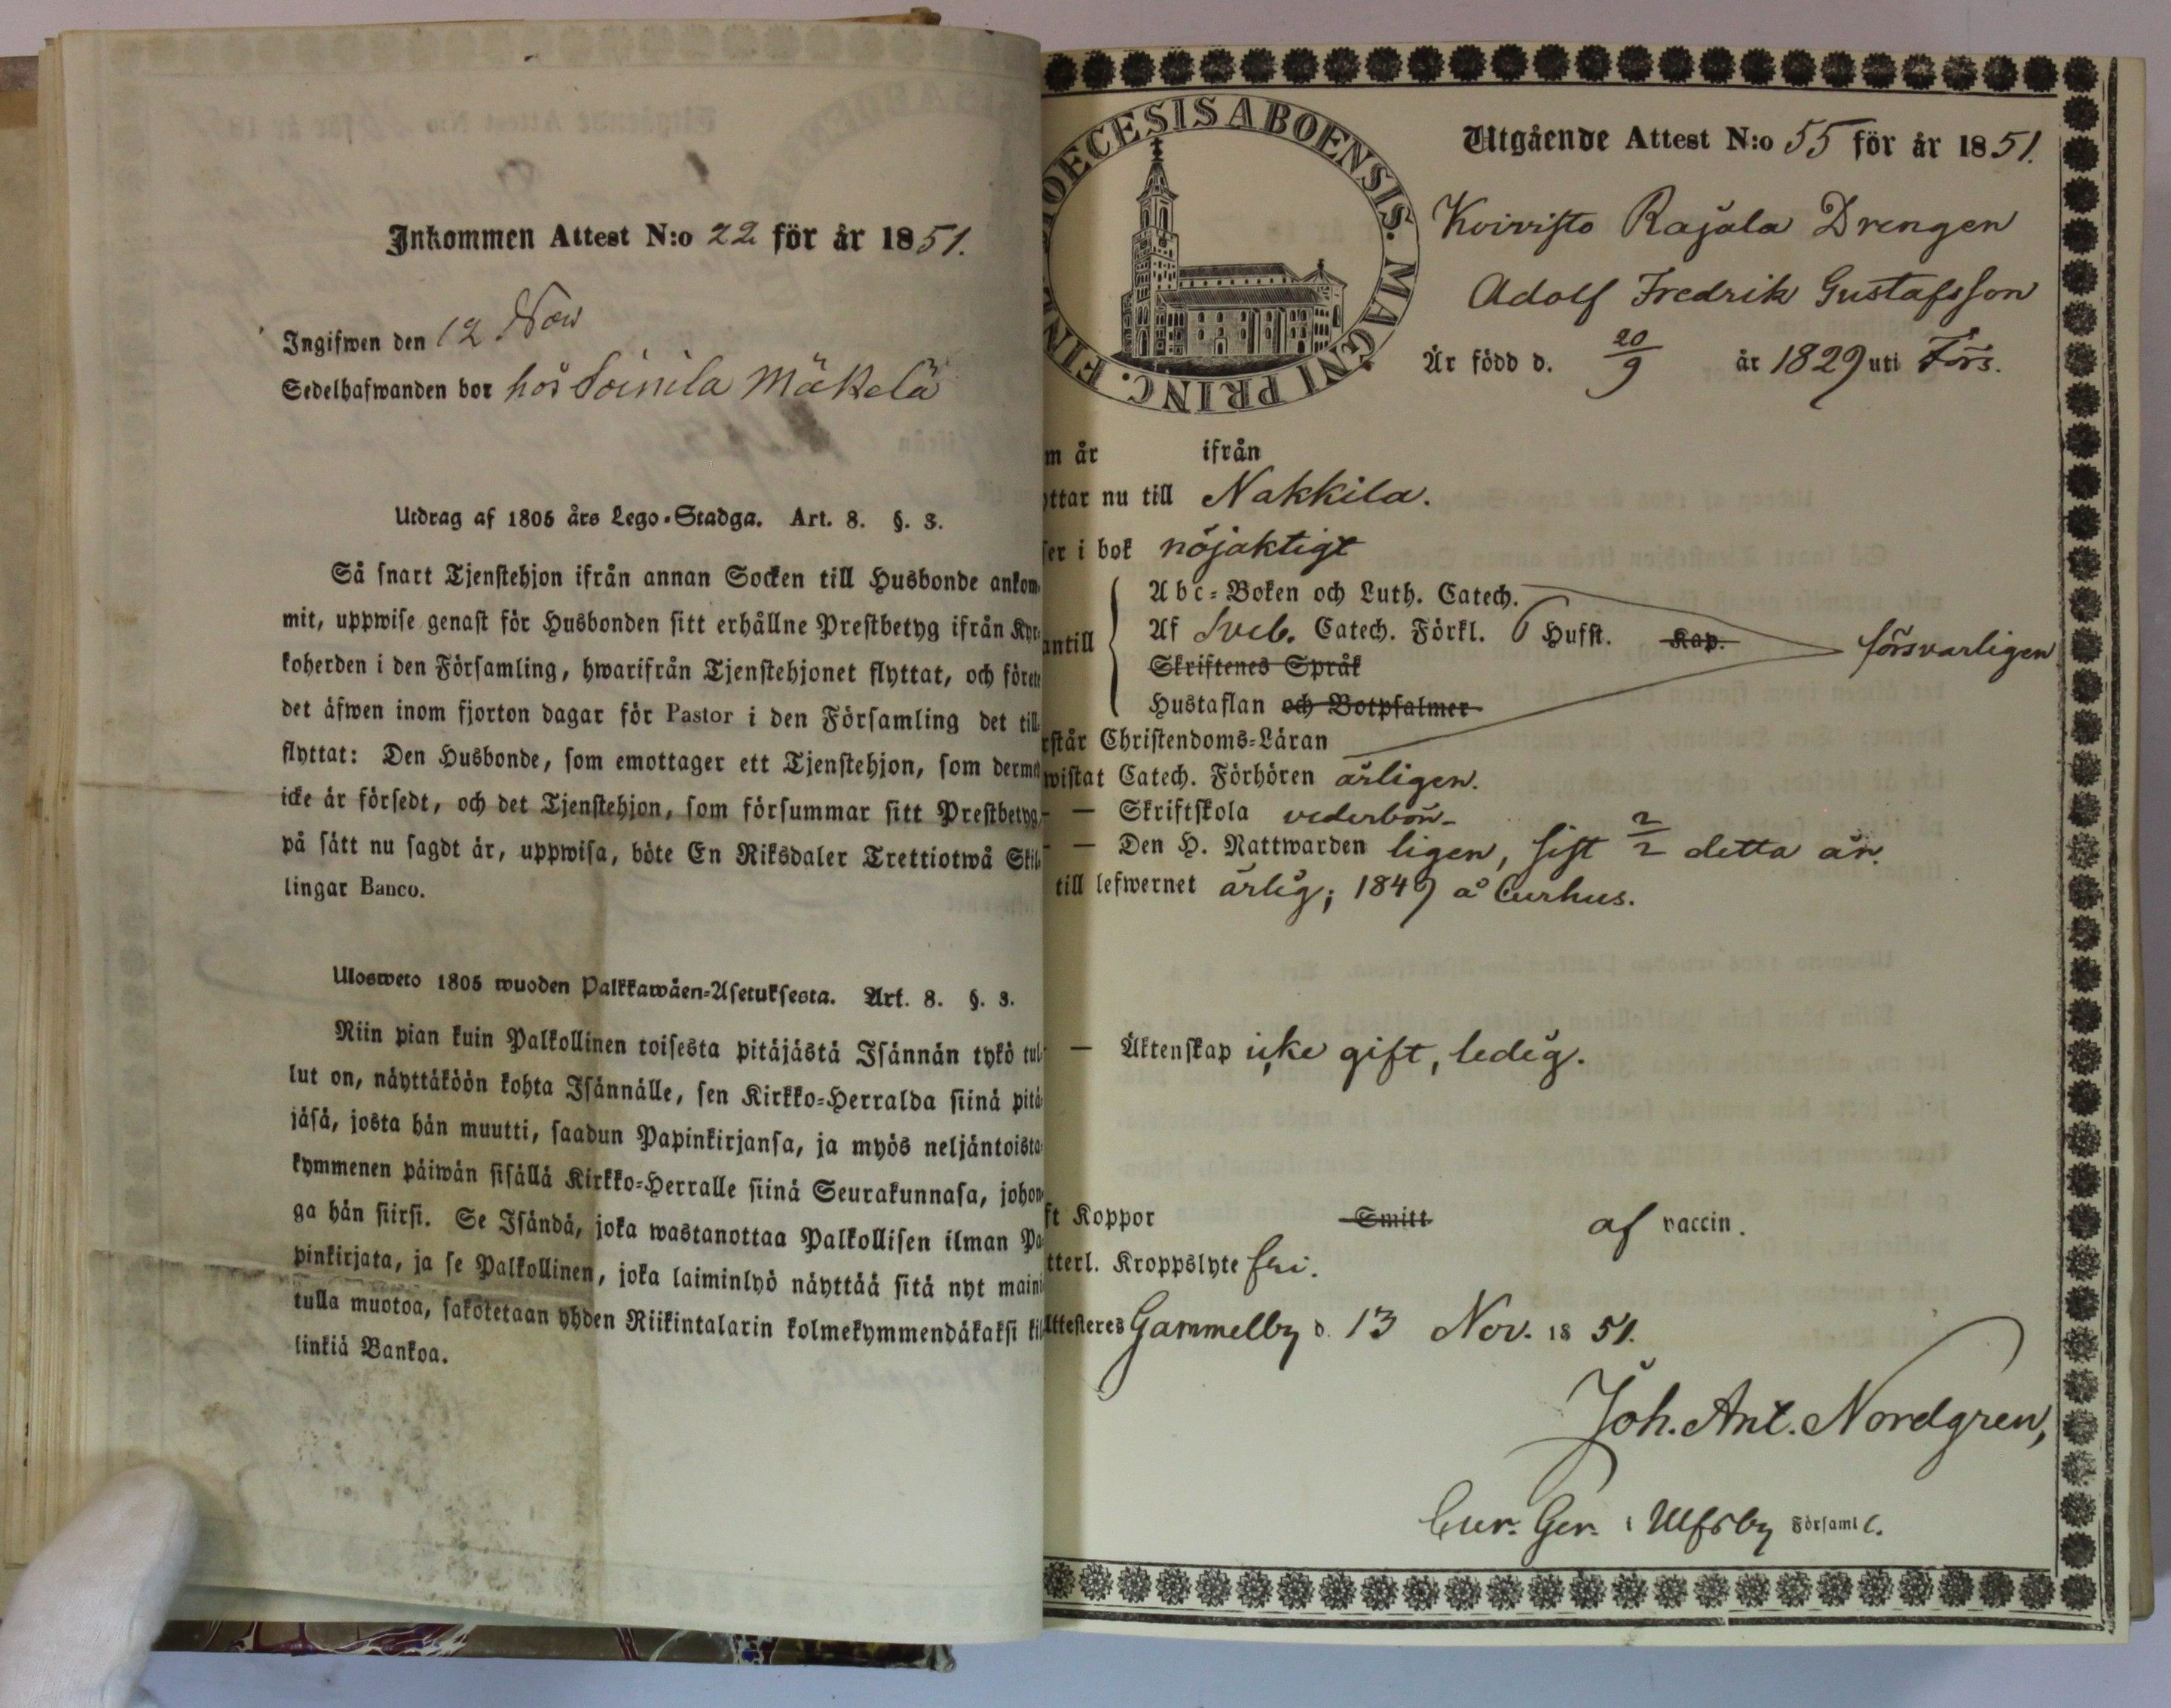 Inkommen Attest N:o 22 för år 1851.
Ingifwen den 12 Nov
Sedelhafwanden bor hos Soinila Mäkelä
Utdrag af 1805 års Lego-Stadga. Art. 8. §. 3.
Så snart Tjenstehjon ifrån annan Socken till Husbonde ankom-
mit, uppwise genast för Husbonden sitt erhållne Prestbetyg ifrån Kyr-
koherden i den Församling, hwarifrån Tjenstehjonet flyttat, och förete
det äfwen inom fjorton dagar för Pastor i den Församling det till-
flyttat: Den Husbonde, som emottager ett Tjenstehjon, som dermed
icke är försedt, och det Tjenstehjon, som försummar sitt Prestbetyg
på sätt nu sagdt är, uppwisa, böte En Riksdaler Trettiotwå Skil-
lingar Banco.
Ulosweto 1805 wuoden Palkkawäen-Asetuksesta. Art. 8. §. 3.
Niin pian kuin Palkollinen toisesta pitäjästä Isännän tykö tul-
lut on, näyttäköön kohta Isännälle, sen Kirkko-Herralda siinä pitä-
jäsä, josta hän muutti, saadun Papinkirjansa, ja myös neljäntoista-
kymmenen päiwän sisällä Kirkko-Herralle siinä Seurakunnasa, johon-
ga hän siirsi. Se Isändä, joka wastanottaa Palkollisen ilman Pa
pinkirjata, ja se Palkollinen, joka laiminlyö näyttää sitä nyt maini
tulla muotoa, sakotetaan yhden Riikintalarin kolmekymmendäkaksi kil
linkiä Bankoa.
DIOECESIS ABOENSIS. MAGNI PRINC. FINL
Utgående Attest N:o 55 för år 1851.
Koivisto Rajala Drengen
Adolf Fredrik Gustafsson
Är född d. 20/9 år 1829 uti Förs.
m år ifrån
ttar nu till Nakkila.
ser i bok nöjaktigt
antill
Abc-Boken och Luth. Catech.
Af Sveb. Catech. Förkl. 6 Hufst. Kap. försvarligen
Skriftenes Språk
Hustaflan och Botpsalmer
rstår Christendoms-Läran
wistat Catech. Förhören årligen.
— Skriftskola vederbör-
— Den H. Nattwarden ligen, sist 2/2 detta år.
till lefwernet ärlig; 1849 å Curhus.
— Äktenskap icke gift, ledig.
ft Koppor Smitt af vaccin.
tterl. Kroppslyte fri.
Attesteres Gammelby d. 13 Nov. 1851.
Joh. Ant. Nordgren,
Cur. Ger. i Ulfsby Församl.